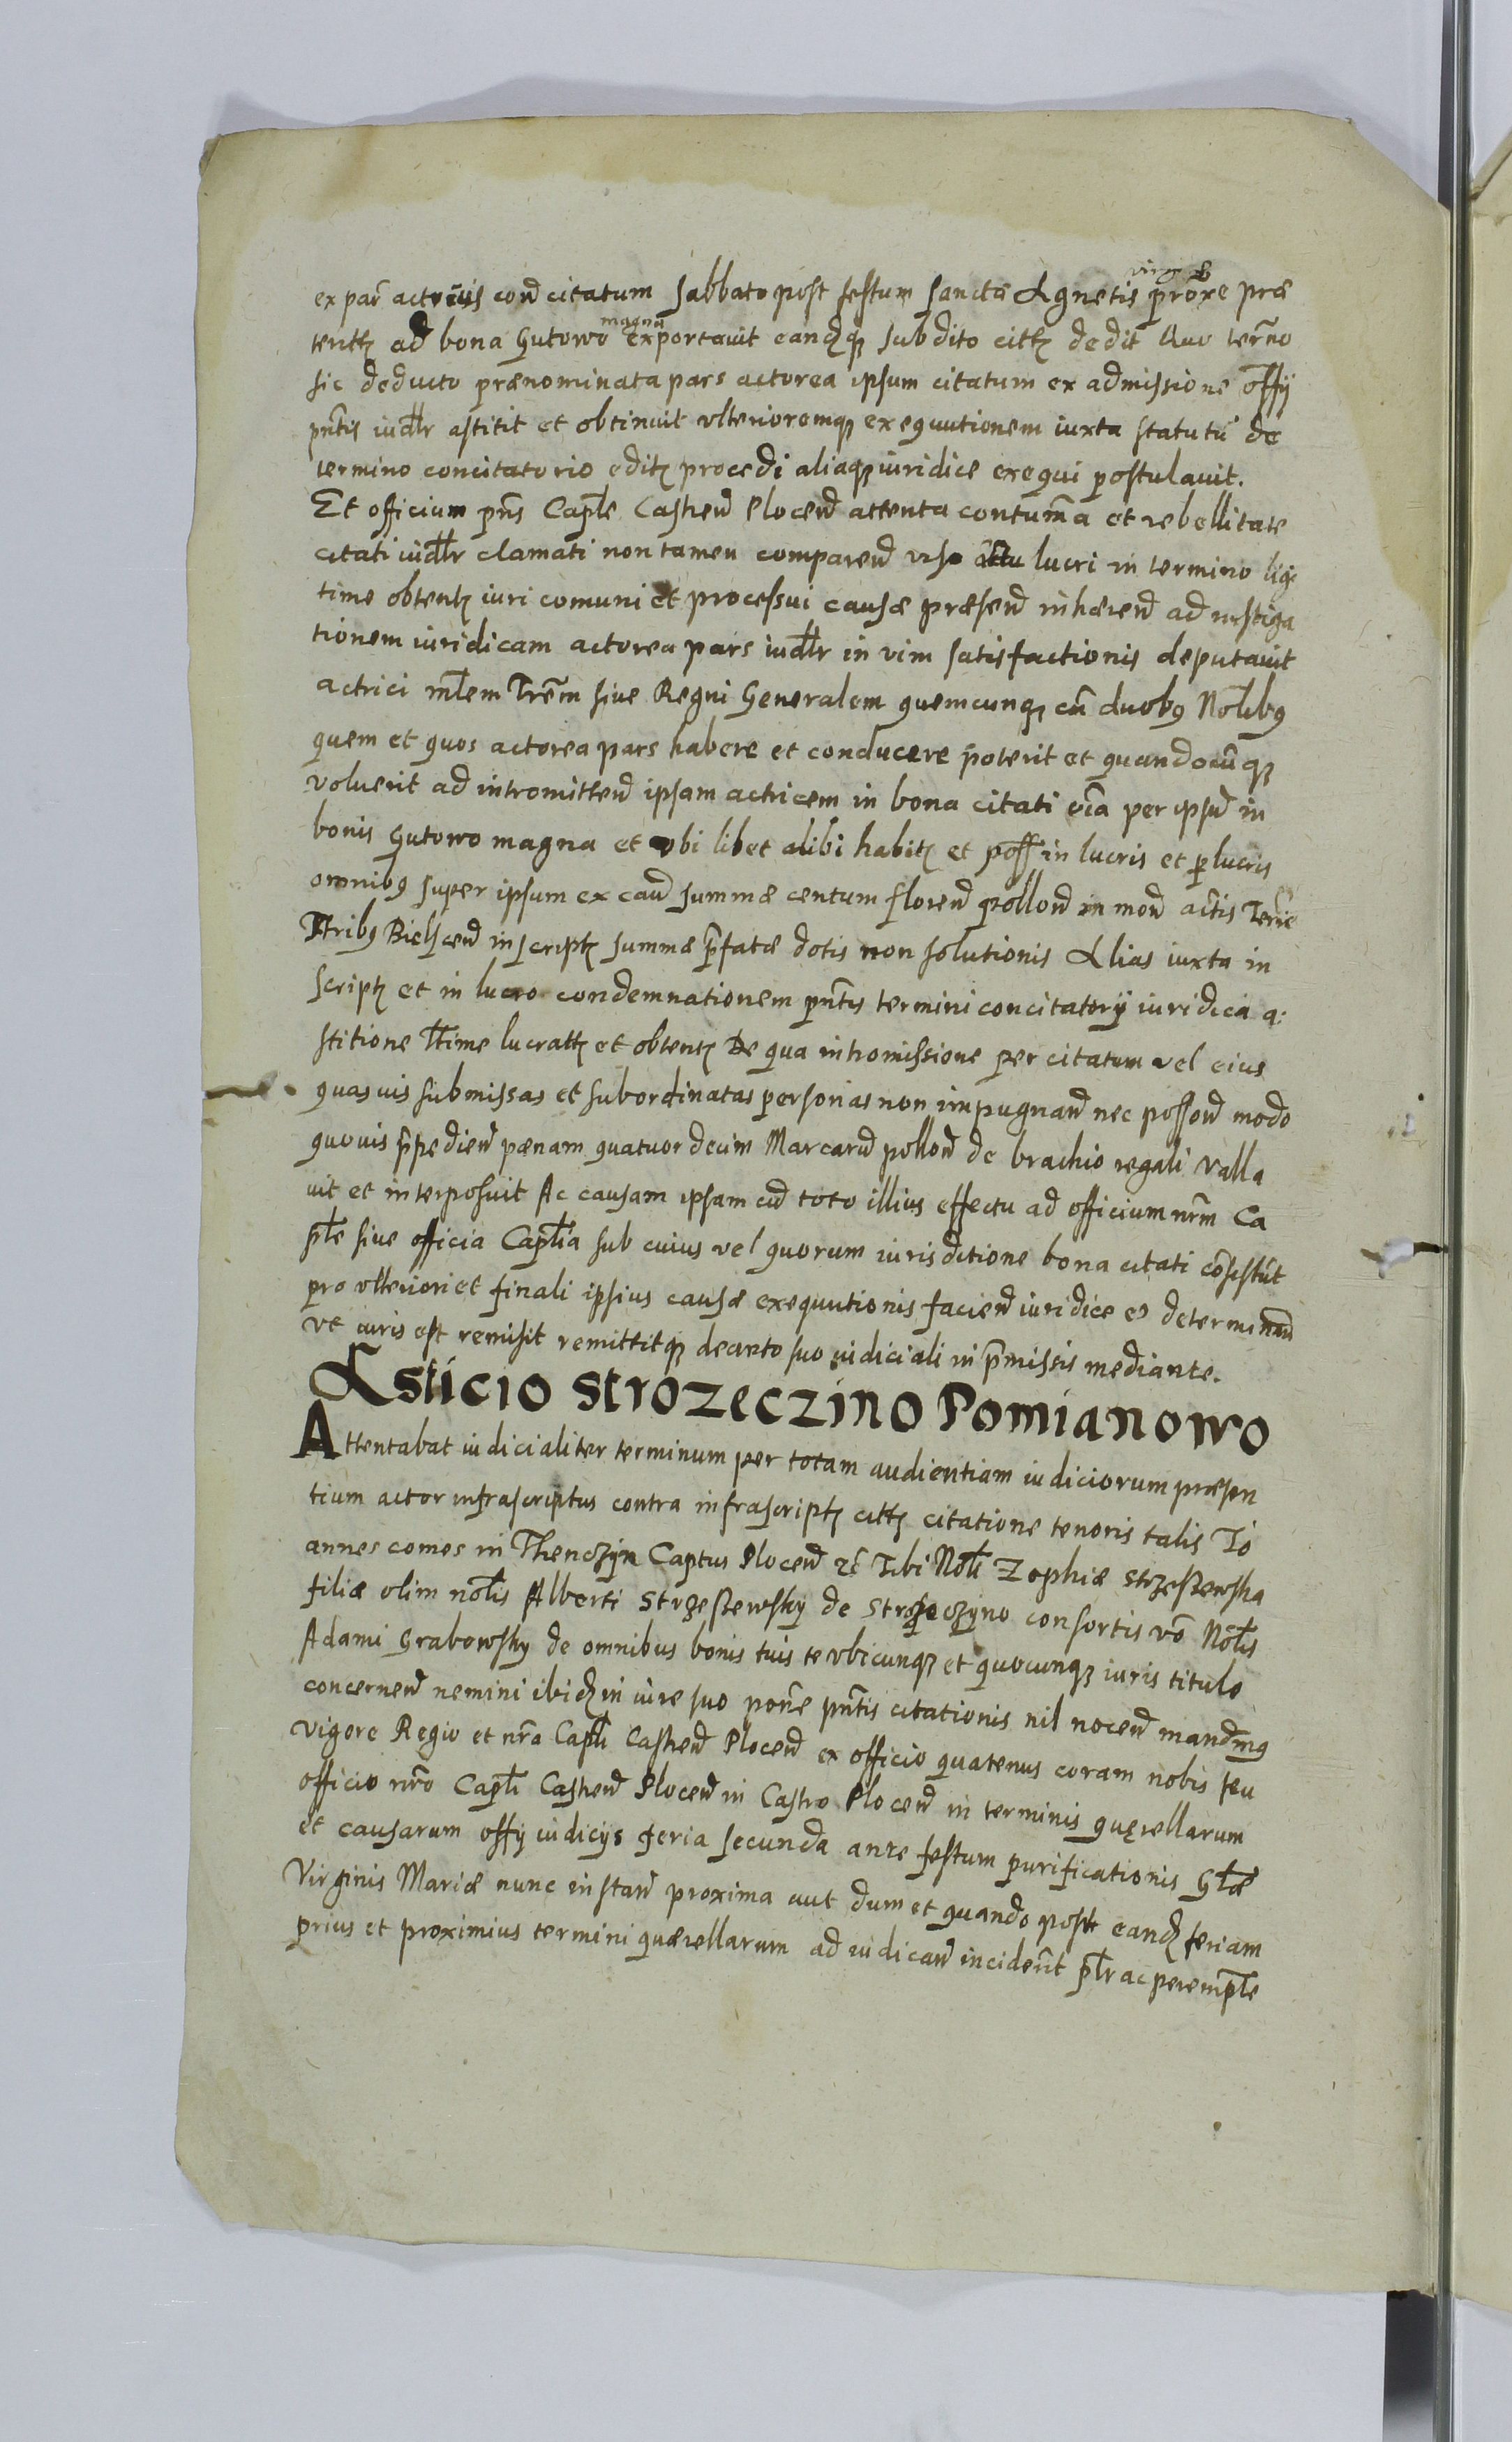 ex par̃ actricis con̄ citatum sabbato post festum sanctæ Agnetis virg proxe præ
teritt ad bona Gutowo magna exportauit eandq̨ subdito citt dedit Quo ter̃no
sic deducto prænominata pars actorea ipsum citatum ex admissione offy
pñtis iudlr astitit et obtinuit vlterioremq̨ exequutionem iuxta statutũ de
termino concitatorio edit procedi aliaq̨ iuridice exequi postulauit.
Et officium pñs Caple Castren Plocen attenta contum̃a et rebellitate
citati iudlr clamati non tamen comparen viso lucri in termino ligi
time obtent iuri comuni et processui causæ præsen inhæren ad instiga
tionem iuridicam actorea pars iudlr in vim satisfactionis deputauit
actrici mlem Trẽm siue Regni Generalem quemcunq̨ cũ duobꝰ Nolibꝰ
quem et quos actorea pars habere et conducere poterit et quandocũq̨
voluerit ad intromitten ipsam actricem in bona citati oĩa per ipsũ in
bonis Gutowo magna et vbi libet alibi habit et poss in lucris et p lucris
omnibꝰ super ipsum ex cau summæ centum floren pollon in mon actis Ter̃ie
Ttribꝰ Bielscen inscript summæ p̃fatæ dotis non solutionis Alias iuxta in
script et in lucro condemnationem pñtis termini concitatory iuridica a:
stitione ltime lucratt et obtent De qua intromissione per citatum vel eius
quasuis submissas et subordinatas personas non impugnan nec posson modo
quouis p̃pedien pænam quatuordecim Marcarũ pollon de brachio regali valla
uit et interposuit Ac causam ipsam cũ toto illius effectu ad officium nr̃m Ca
ple siue officia Caplia sub cuius vel quorum iurisditione bona citati cõsistũt
pro vlteriori et finali ipsius causæ exequutionis facien iuridice et determinan
vt iuris est remisit remittitq̨ decreto suo iudiciali in p̃missis mediante.
Asticio Strozeczino Pomianowo
Attentabat iudicialiter terminum per totam audientiam iudiciorum præsen
tium actor infrascriptus contra infrascript citt citatione tenoris talis Io
annes comes in Thenczyn Captus Plocen zc̃ Tibi Noli Zophiæ Strzeszewska
filiæ olim nolis Alberti Strzeszewsky de Strozeczyno consortis võ Nolis
Adami Grabowsky de omnibus bonis tuis te vbicunq̨ et quocunq̨ iuris titulo
concernen nemini ibid in iure suo pone pñtis citationis nil nocen mandmꝰ
vigore Regio et nr̃a Capli Castren Plocen ex officio quatenus coram nobis seu
officio nr̃o Capli Castren Plocen in Castro Plocen in terminis quęrellarum
et causarum offy iudicys feria secunda ante festum purificationis Glæ
Virginis Mariæ nunc instan proxima aut dum et quando post eand feriam
prius et proximius termini quærellarum ad iudican incidẽnt plr ac perempte